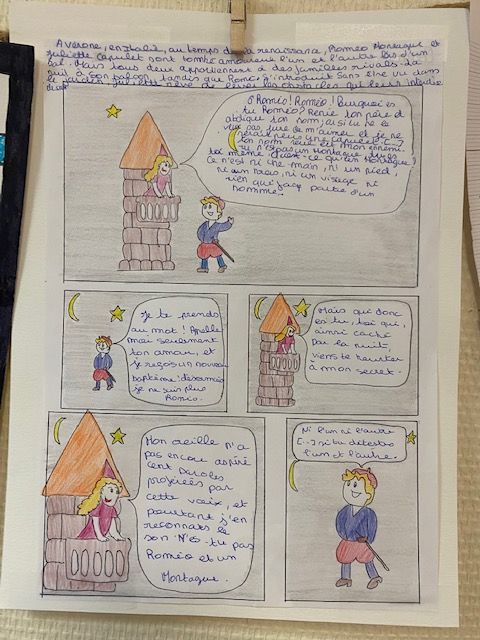 A Verone, en Italie, au temps de la renaissance, Roméo Montague et
juliette Capulet sont tombé amoureux l'un et l'autre lors d'un
bal. Mais tous deux appartiennent à des familles rivals. La
nuit à son balcon, tandis que Roméo s'introduit sans être vu dans
le jardin, juliette rêve de lever les obstacles qui leurs
Ô Roméo! Roméo! Pourquoi es
tu Roméo? Renie ton père et
abdique ton nom; ou si tu ne le
veux pas, jure de m'aimer et je ne
serai plus une Capulet. [...]
Ton nom seul est mon ennemi.
Tu n'es pas un Montague, tu es
toi même. Qu'est-ce qu'un Montague?
Ce n'est ni une main, ni un pied,
ni un bras, ni un visage ni
rien qui fasse partie d'un
homme.
Je te prends
au mot! Appelle
moi seulement
ton amour, et
je reçois un nouveau
baptême: désormais
je ne suis plus
Roméo.
Mais qui donc
es-tu, toi qui,
ainsi caché
par la nuit,
viens te heurter
à mon secret.
Mon oreille n'a
pas encore aspiré
cent paroles
proférées par
cette voix, et
pourtant j'en
reconnais le
son. N'es-tu pas
Roméo et un
Montague.
Ni l'un ni l'autre
[...] si tu détestes
l'un et l'autre.